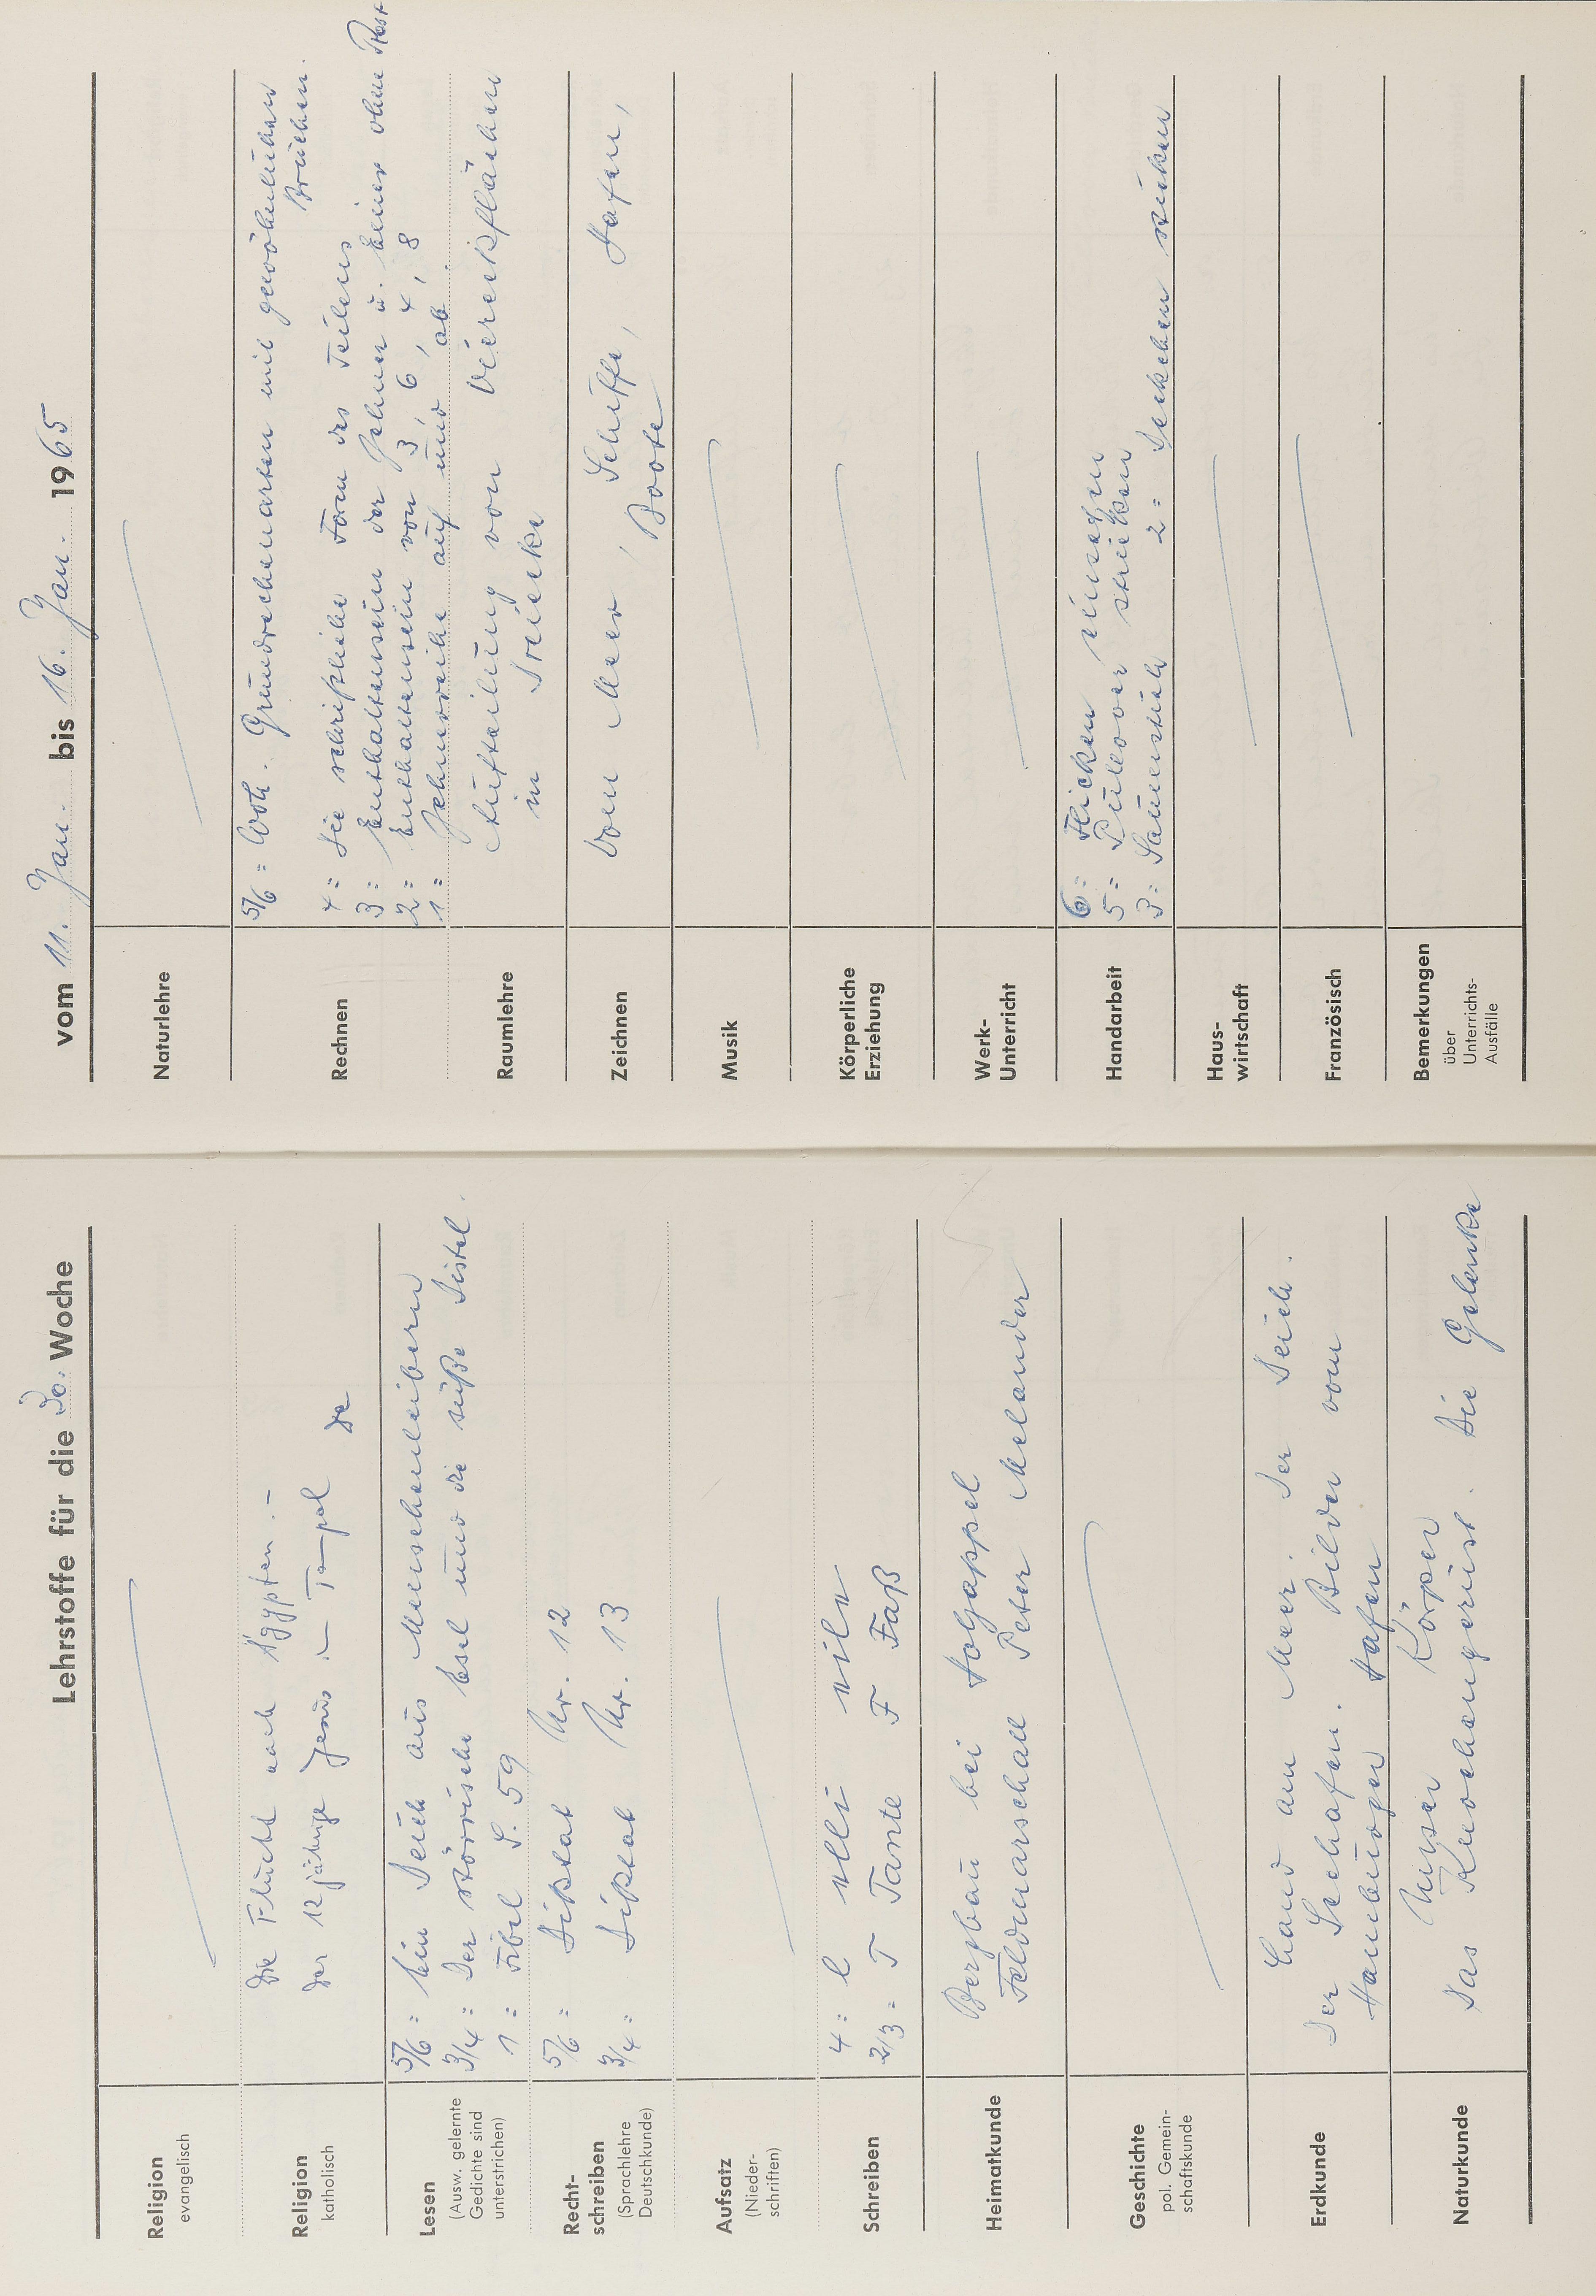 Lehrstoffe für die 30. Woche
Religion
evangelisch
Religion
katholisch
Die Flucht nach Ägypten. –
Der 12 jährige Jesus. – Tempel
Lesen
(Ausw. gelernte
Gedichte sind
unterstrichen)
5/6 = Ein Deich aus Menschenleibern
3/4 = Der störrische Esel und die süße Distel.
1 = Fibel S. 59
Recht-
schreiben
(Sprachlehre
Deutschkunde)
5/6 = Diktat Nr. 12
3/4 = Diktat Nr. 13
Aufsatz
(Nieder-
schriften)
Schreiben
4 = l
2/3 = T Tante F Faß
Heimatkunde
Bergbau bei Holzappel
Feldmarschall Peter Melander
Geschichte
pol. Gemein-
schaftskunde
Erdkunde
Land am Meer. Der Deich.
Der Seehafen. Bilder vom
Hamburger Hafen
Naturkunde
Unser Körper
Das Knochengerüst. Die Gelenke
vom 11. Jan. bis 16. Jan. 1965
Naturlehre
Rechnen
5/6 = Wdh. Grundrechenarten mit gewöhnlichen
Brüchen.
4 = Die schriftliche Form des Teilens
3 = Enthaltensein der Zehner u. Einer ohne Rest
2 = Enthaltensein von 3, 6, 4, 8
1 = Zehnerreihe auf und ab.
Raumlehre
Aufteilung von Vierecksflächen
in Dreiecke
Zeichnen
Vom Meer, Schiffe, Hafen,
Boote
Musik
Körperliche
Erziehung
Werk-
Unterricht
Handarbeit
6 = Flicken einsetzen
5 = Pullover stricken
3 = Saumstich 2 = Deckchen sticken
Haus-
wirtschaft
Französisch
Bemerkungen
über
Unterrichts-
Ausfälle